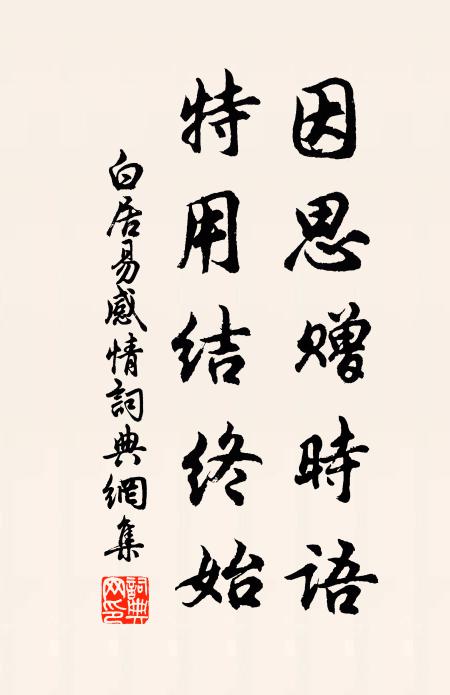 因思赠時語
特用结终始
白居易感情詞典網集
詞典网印